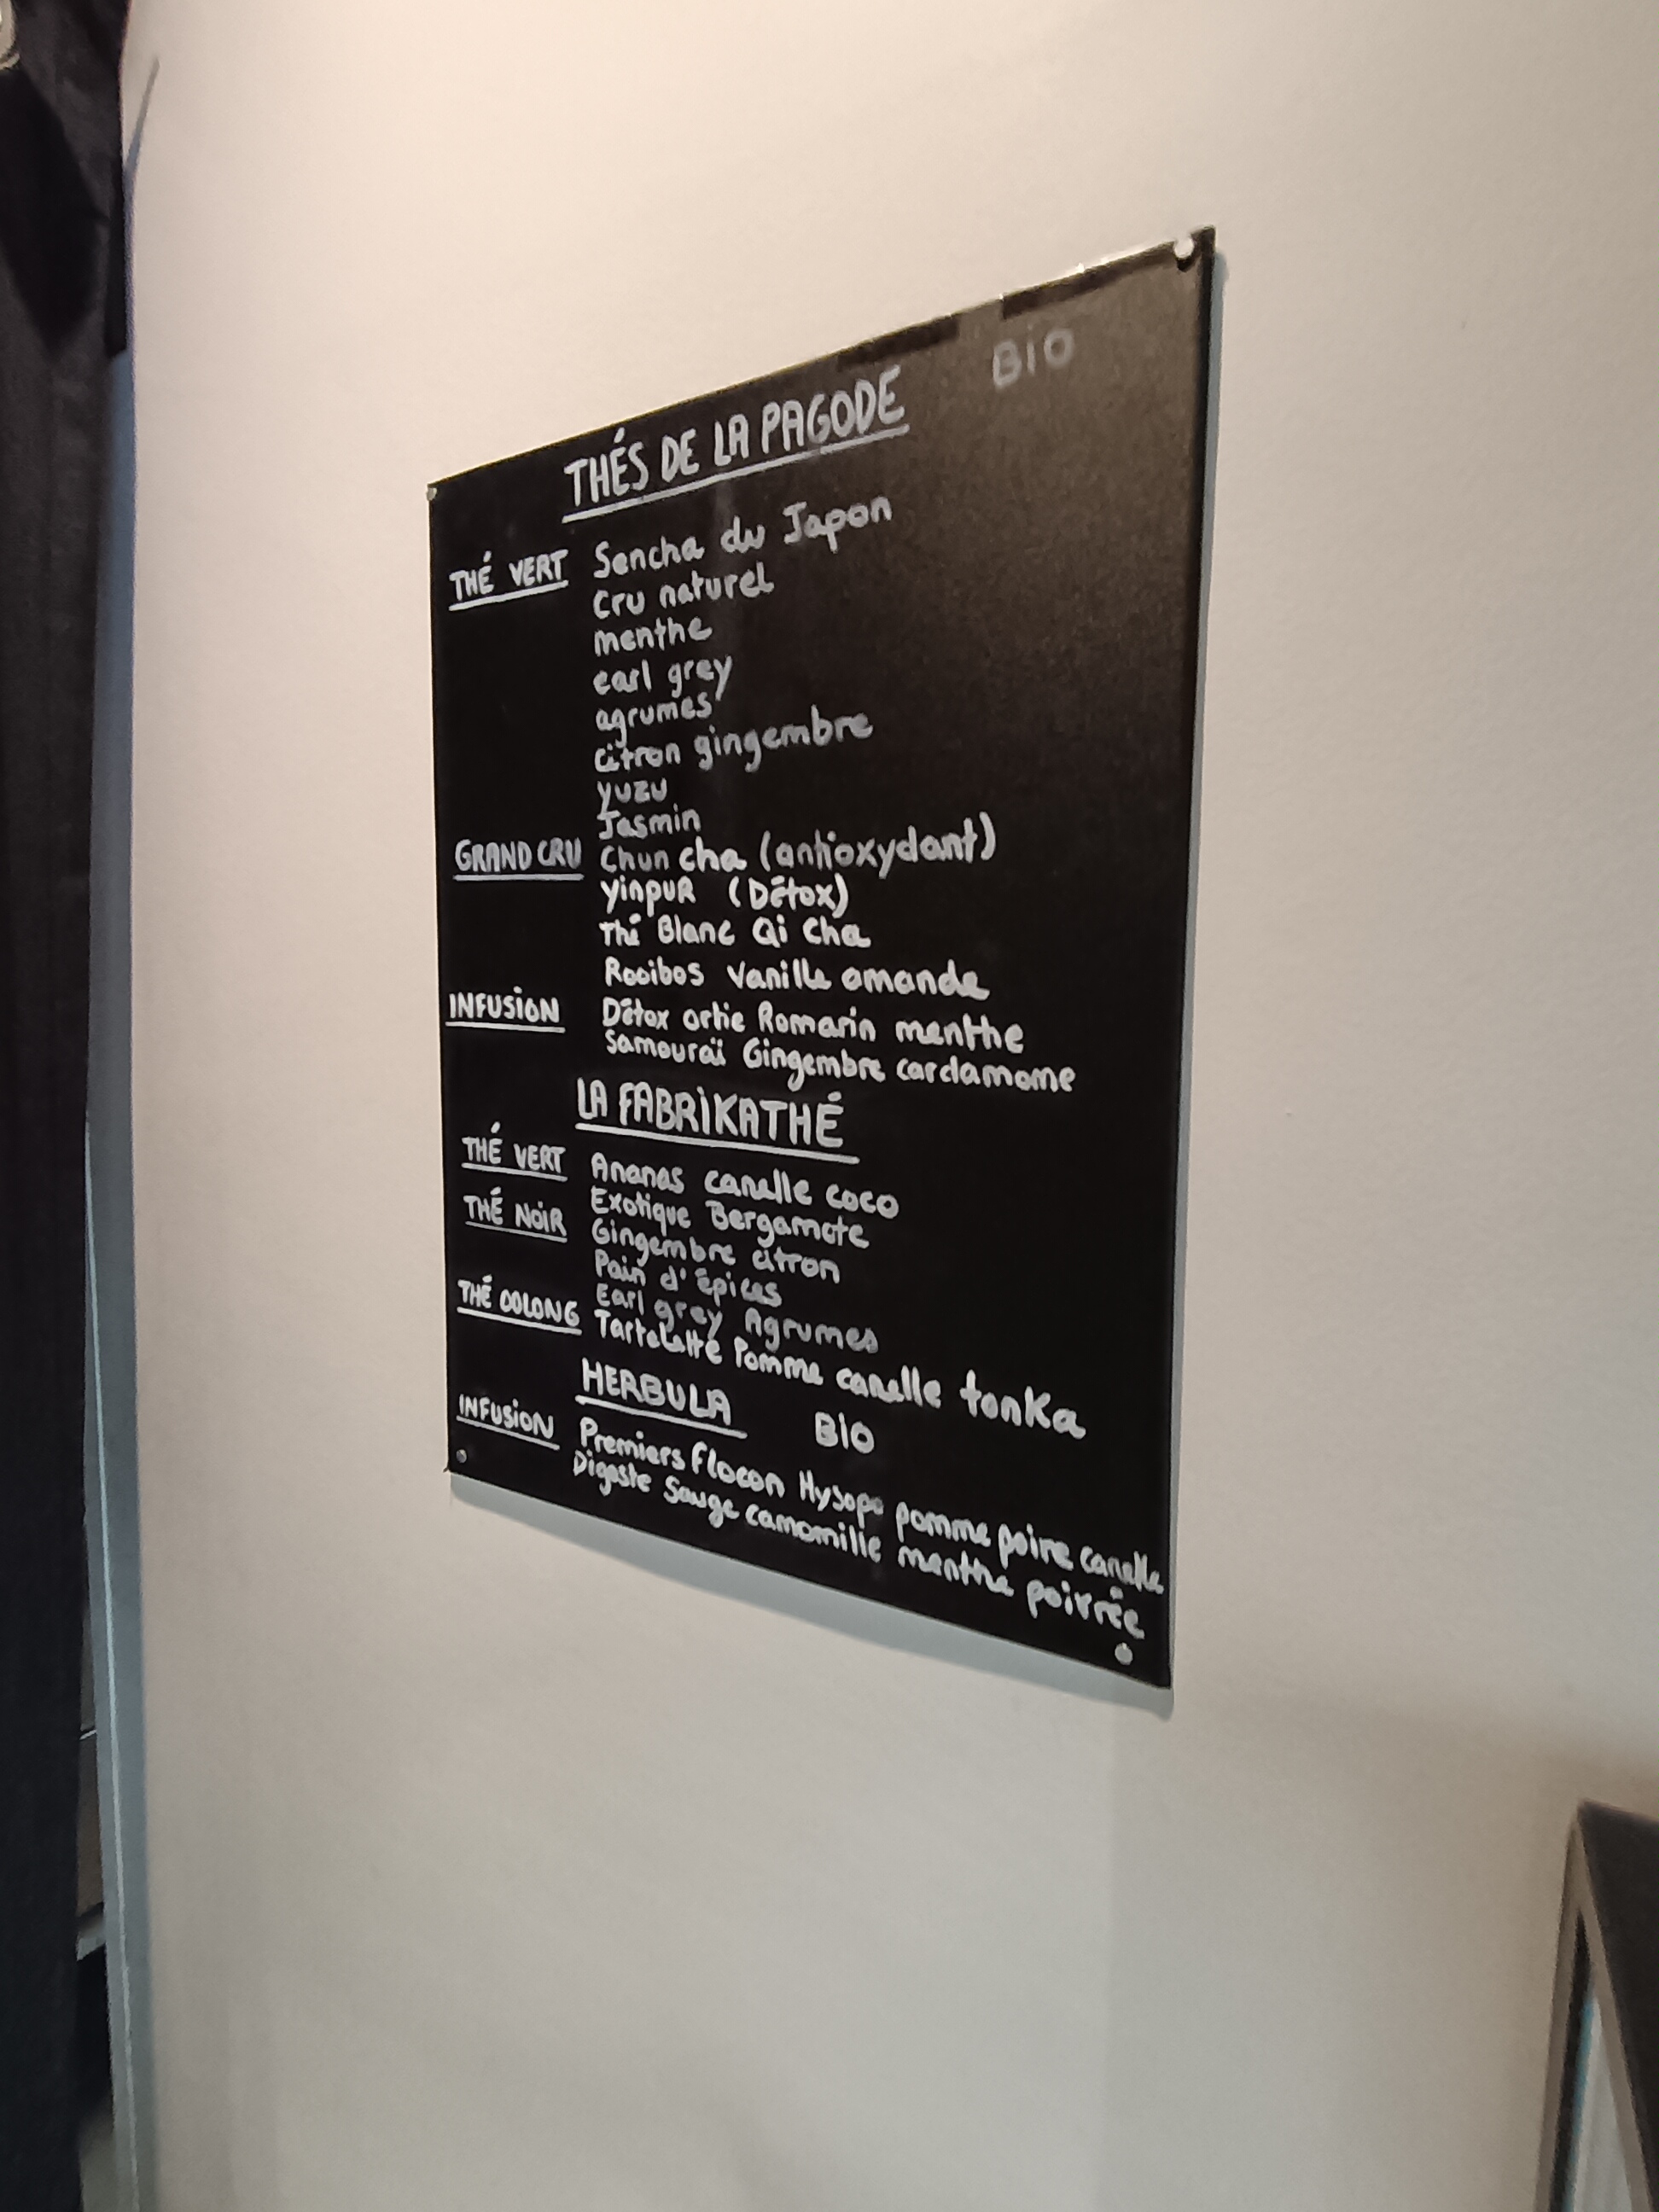 Bio
THÉS DE LA PAGODE
THÉ VERT Sencha du Japon
Cru naturel
menthe
earl grey
agrumes
citron gingembre
yuzu
Jasmin
GRAND CRU Chun cha (antioxydant)
Yinpur (Détox)
Thé Blanc Qi Cha
Rooibos Vanille amande
INFUSION Détox ortie Romarin menthe
Samouraï Gingembre cardamome
LA FABRIKATHÉ
THÉ VERT Ananas canelle coco
Exotique Bergamote
THÉ NOIR Gingembre citron
Pain d'épices
Earl grey Agrumes
THÉ OOLONG Tartelette Pomme canelle tonka
HERBULA BIO
INFUSION Premiers Flocon Hysope pomme poire canelle
Digeste Sauge camomille menthe poivrée